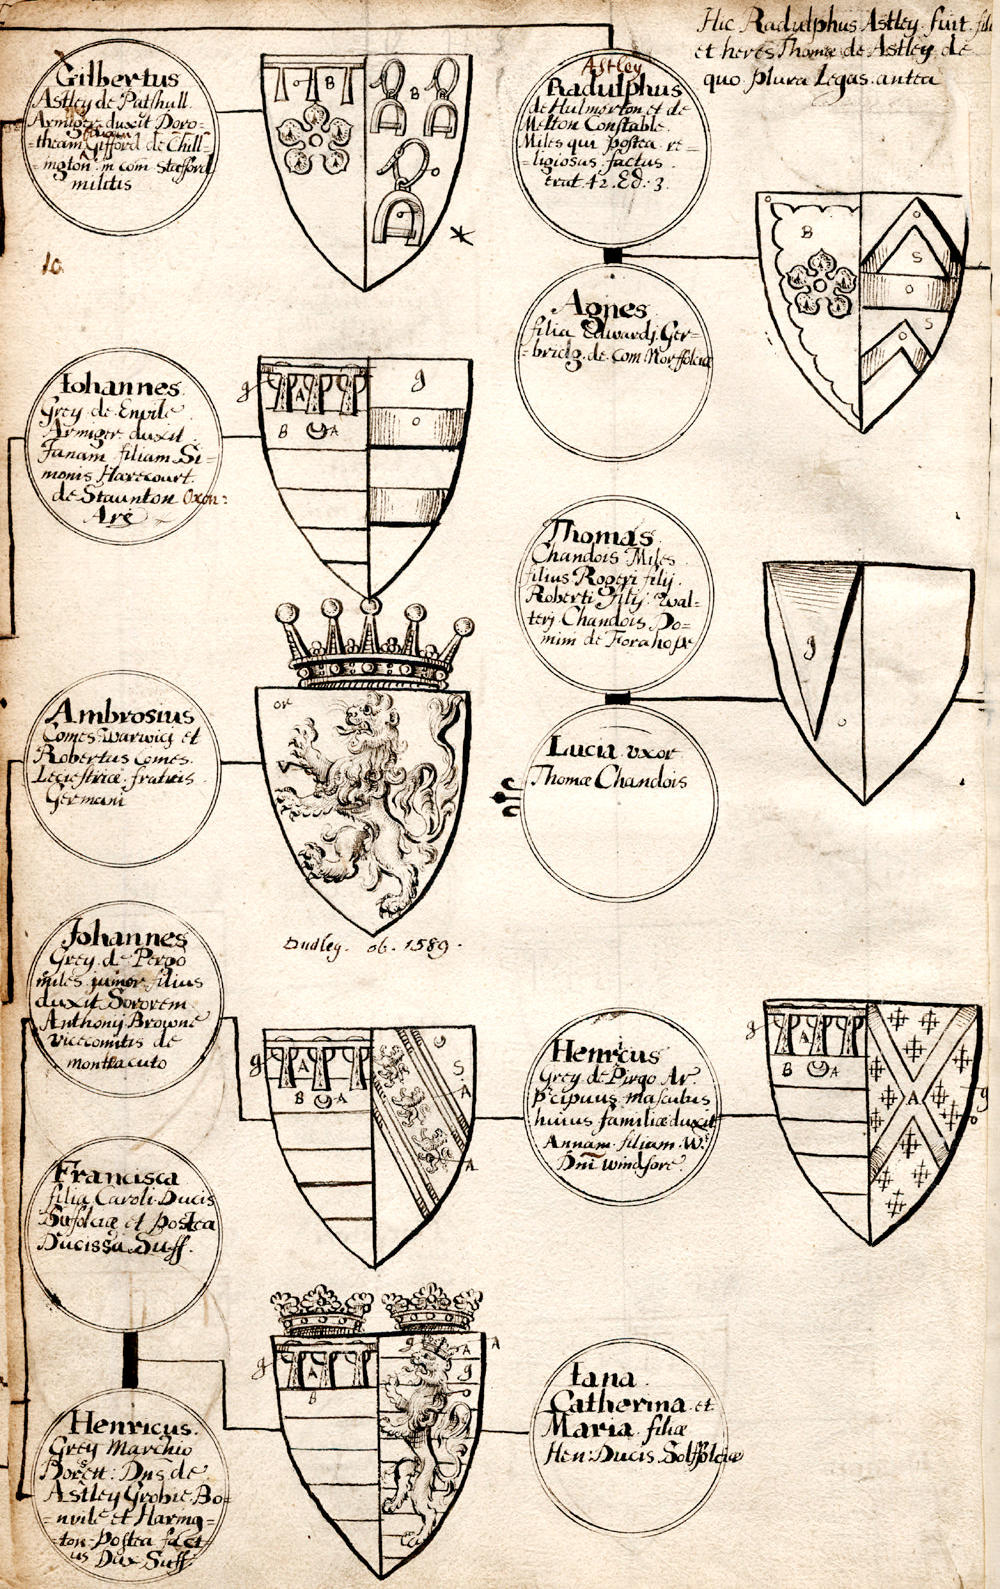 Hic Radulphus Astley fuit fili
et heres Thomæ de Astley de
quo plura Legas antea
Gilbertus
Astley de Patshull
Armiger duxit Doro-
-theam Gifford de Chill-
-mgton in com Stafford
militis
B
B
10
Astley
Radulphus
de Hulmorton et de
Melton Constable
Miles qui postea re-
ligiosus factus
erat 42. Ed: 3.
Agnes
filia Edwardj Ger-
-bridg de Com Norffolciæ
B
o
S
o
o
S
Iohannes
Grey de Envile
Armiger duxit
Janam filiam Si-
monis Harecourt
de Staunton Oxon:
Arg
g
A
B
A
g
o
Thomas
Chandois Miles
filius Rogeri filij
Roberti Filij Wal-
terj Chandois Do-
mini de Forahope
g
o
Lucia uxor
Thomæ Chandois
Ambrosius
Comes Warwici et
Robertus Comes
Leicestriæ fratres
Germani
or
Dudley. ob. 1589.
Johannes
Grey de Pergo
miles junior filius
duxit Sororem
Anthonij Browne
vicecomitis de
monteacuto
g
A
B
A
o
S
A
A
Henricus
Grey de Pirgo Ar
pcipuus masculus
huius familiæ duxit
Annam filiam W.
Dni windsore
g
A
B
A
A
g
o
Francisca
filia Caroli Ducis
Suffolciæ et postea
Ducissa Suff.
Henricus
Grey Marchio
Dorcett: Dns de
Astley Grobie Bo-
-nvile et Haring-
-ton Postea fact
us Dux Suff
g
A
B
g
A
A
g
Iana
Catherina et
Maria filiæ
Hen: Ducis Solffolciæ